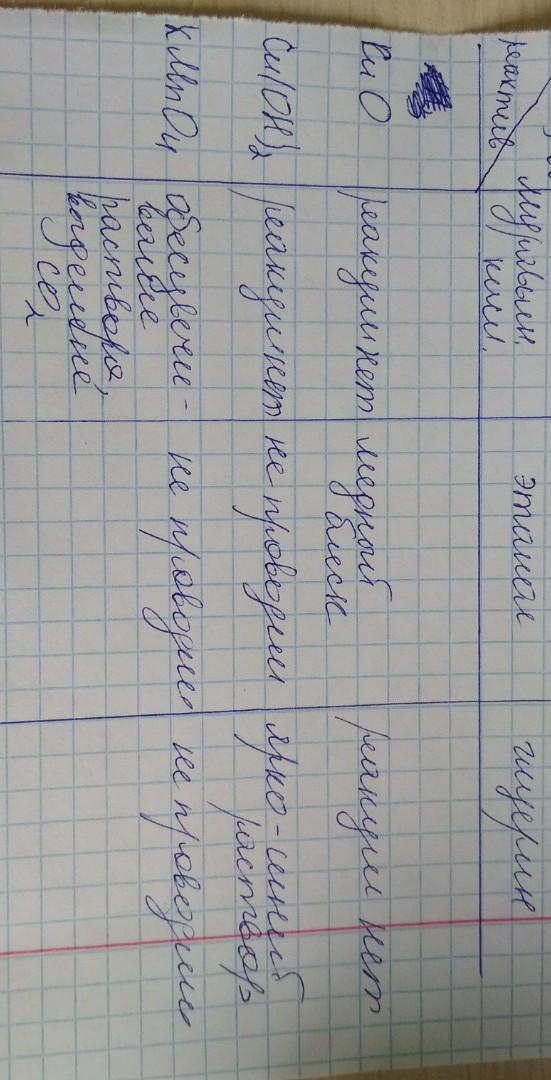 реактив
муравьин. кисл.
этанол
глицерин
CuO
реакции нет
медный блеск
реакции нет
Cu(OH)2
реакции нет
не проводим
ярко-синий раствор
KMnO4
обесцвечи-
вание
раствора,
выделение
CO2
не проводим
не проводим